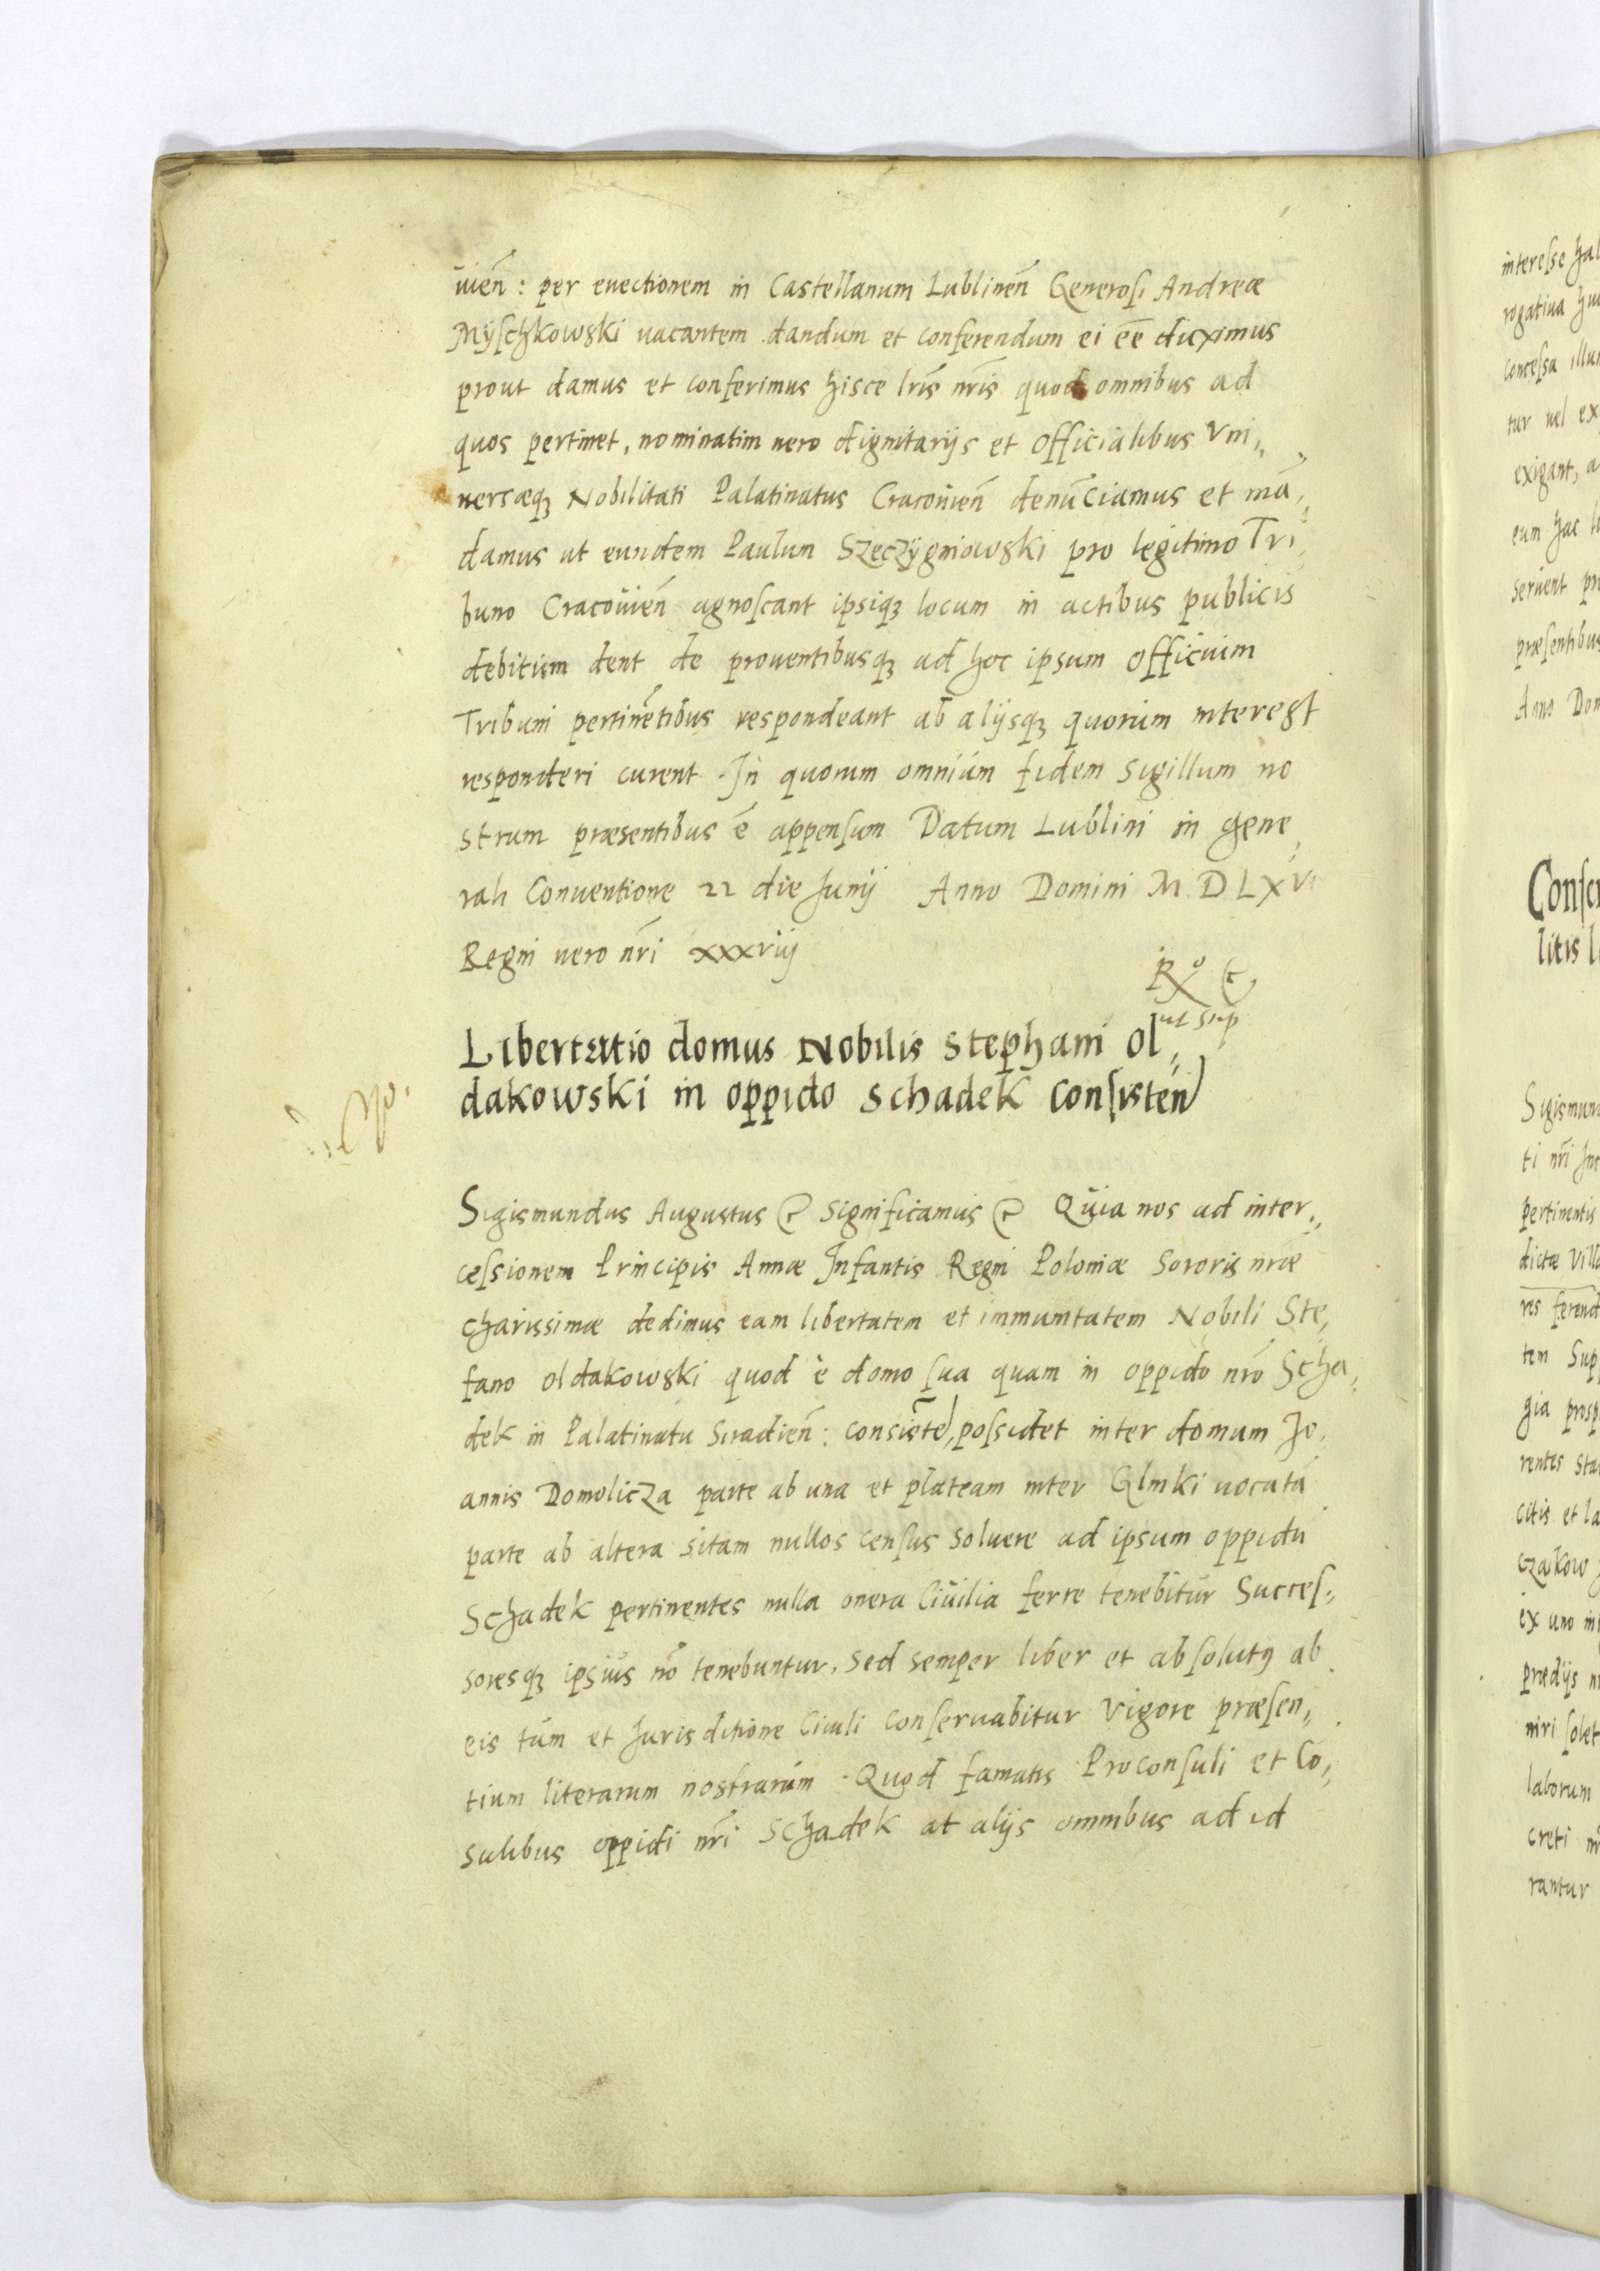 uien̄: per euectionem in Castellanum Lublinen̄ Generosi Andreæ
Mÿschkowski uacantem dandum et conferendum ei eē duximus
prout damus et conferimus hisce lr̄is nr̄is quod omnibus ad
quos pertinet, nominatim uero dignitarijs et Officialibus Vni,,
uersæqꝫ Nobilitati Palatinatus Cracouien̄ denūciamus et mā,,
damus ut eundem Paulum Szeczÿgniowski pro legitimo Tri
buno Cracouien̄ agnoscant ipsiqꝫ locum in actibus publicis
debitum dent de prouentibusqꝫ ad hoc ipsum Officium
Tribuni pertinētibus respondeant ab alijsqꝫ quorum interest
responderi curent. In quorum omnium fidem Sigillum no
strum præsentibus ē appensum Datum Lublini in gene,,
rali Conuentione 22 die Junij Anno Domini M D LXVI
Regni uero nr̄i xxxvij
Rº &
ut sup
Libertatio domus Nobilis Stephani Ol,,
dakowski in oppido Schadek consisten̄
Sigismundus Augustus & Significamus & Quia nos ad inter,,
cessionem Principis Annæ Infantis Regni Poloniæ Sororis nr̄æ
charissimæ dedimus eam libertatem et immunitatem Nobili Ste,
fano Oldakowski quod è domo sua quam in oppido nr̄o Scha,,
dek in Palatinatu Siradien̄: consistē, possidet inter domum Jo,
annis Domolicza parte ab una et plateam inter Glinki uocatā
parte ab altera sitam nullos census soluere ad ipsum oppidū
Schadek pertinentes nulla onera Ciuilia ferre tenebitur Succes,,
soresqꝫ ipsius nō tenebuntur, sed semper liber et absolutꝰ ab
eis tum et Jurisditione Ciuili conseruabitur vigore præsen,,
tium literarum nostrarum. Quod famatis Proconsuli et Co,,
sulibus oppidi nr̄i Schadek at alijs omnibus ad id